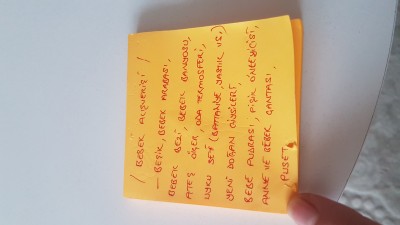 / BEBEK ALIŞVERİŞİ /
— BEŞİK, BEBEK ARABASI,
BEBEK BEZİ, BEBEK BANYOSU,
ATEŞ ÖLÇER, ODA TERMOSFERİ,
UYKU SETİ (BATTANİYE, YASTIK VS,
YENİ DOĞAN GİYSİLERİ
BEBE PUDRASI, PİŞİK ÖNLEYİCİSİ,
ANNE VE BEBEK ÇANTASI,
(PUSET